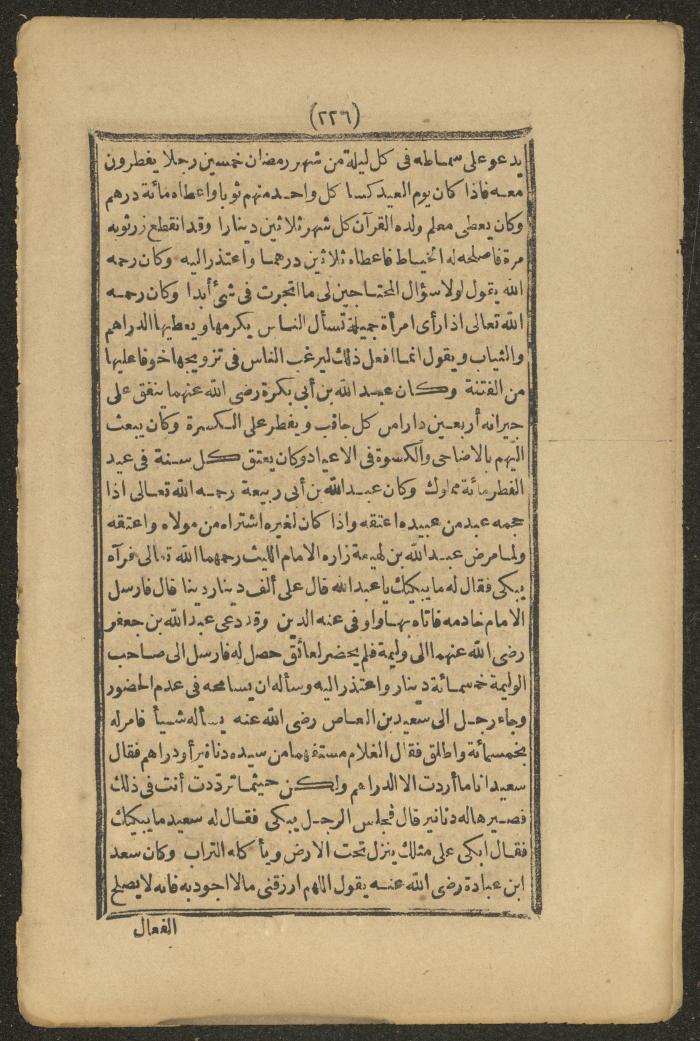 (٢٢٦)
يدعو على سماطه فى كل ليلة من شهر رمضان خمسين رجلا يفطرون
معه فاذا كان يوم العيد كسا كل واحد منهم ثوبا واعطاه مائة درهم
وكان يعطى معلم ولده القرآن كل شهر ثلاثين دينارا وقد انقطع زر ثوبه
مرة فاصلحه له الخياط فاعطاه ثلاثين درهما واعتذر اليه وكان رحمه
الله يقول لولا سؤال المحتاجين لى ما اتجرت فى شئ أبدا وكان رحمه
الله تعالى اذا رأى امرأة جميلة تسأل الناس يكرمها ويعطيها الدراهم
والثياب ويقول انما افعل ذلك ليرغب الناس فى تزويجها خوفا عليها
من الفتنة وكان عبد الله بن أبى بكرة رضى الله عنهما ينفق على
جيرانه أربعين دارا من كل جانب ويفطر على الكسرة وكان يبعث
اليهم بالاضاحى والكسوة فى الاعياد وكان يعتق كل سنة فى عيد
الفطر مائة مملوك وكان عبد الله بن أبى ربيعة رحمه الله تعالى اذا
عبد من عبيده اعتقه واذا كان لغيره اشتراه من مولاه واعتقه
ولما مرض عبد الله بن لهيعة زاره الامام الليث رحمهما الله تعالى فرآه
يبكى فقال له ما يبكيك يا عبد الله قال على ألف دينار دينا قال فارسل
الامام خادمه فاتاه بها واوفى عنه الدين وقد دعى عبد الله بن جعفر
رضى الله عنهما الى وليمة فلم يحضر لعائق حصل له فارسل الى صاحب
الوليمة خمسمائة دينار واعتذر اليه وسأله ان يسامحه فى عدم الحضور
وجاء رجل الى سعيد بن العاص رضى الله عنه يسأله شيأ فامر له
بخمسمائة واطلق فقال الغلام مستفهما من سيده دنانير أو دراهم فقال
سعيد انا ما أردت الا الدراهم ولكن حيثما ترددت أنت فى ذلك
فصيرها له دنانير قال فجلس الرجل يبكى فقال له سعيد ما يبكيك
فقال ابكى على مثلك ينزل تحت الارض ويأكله التراب وكان سعد
ابن عبادة رضى الله عنه يقول اللهم ارزقنى مالا اجود به فانه لا يصلح
الفعال